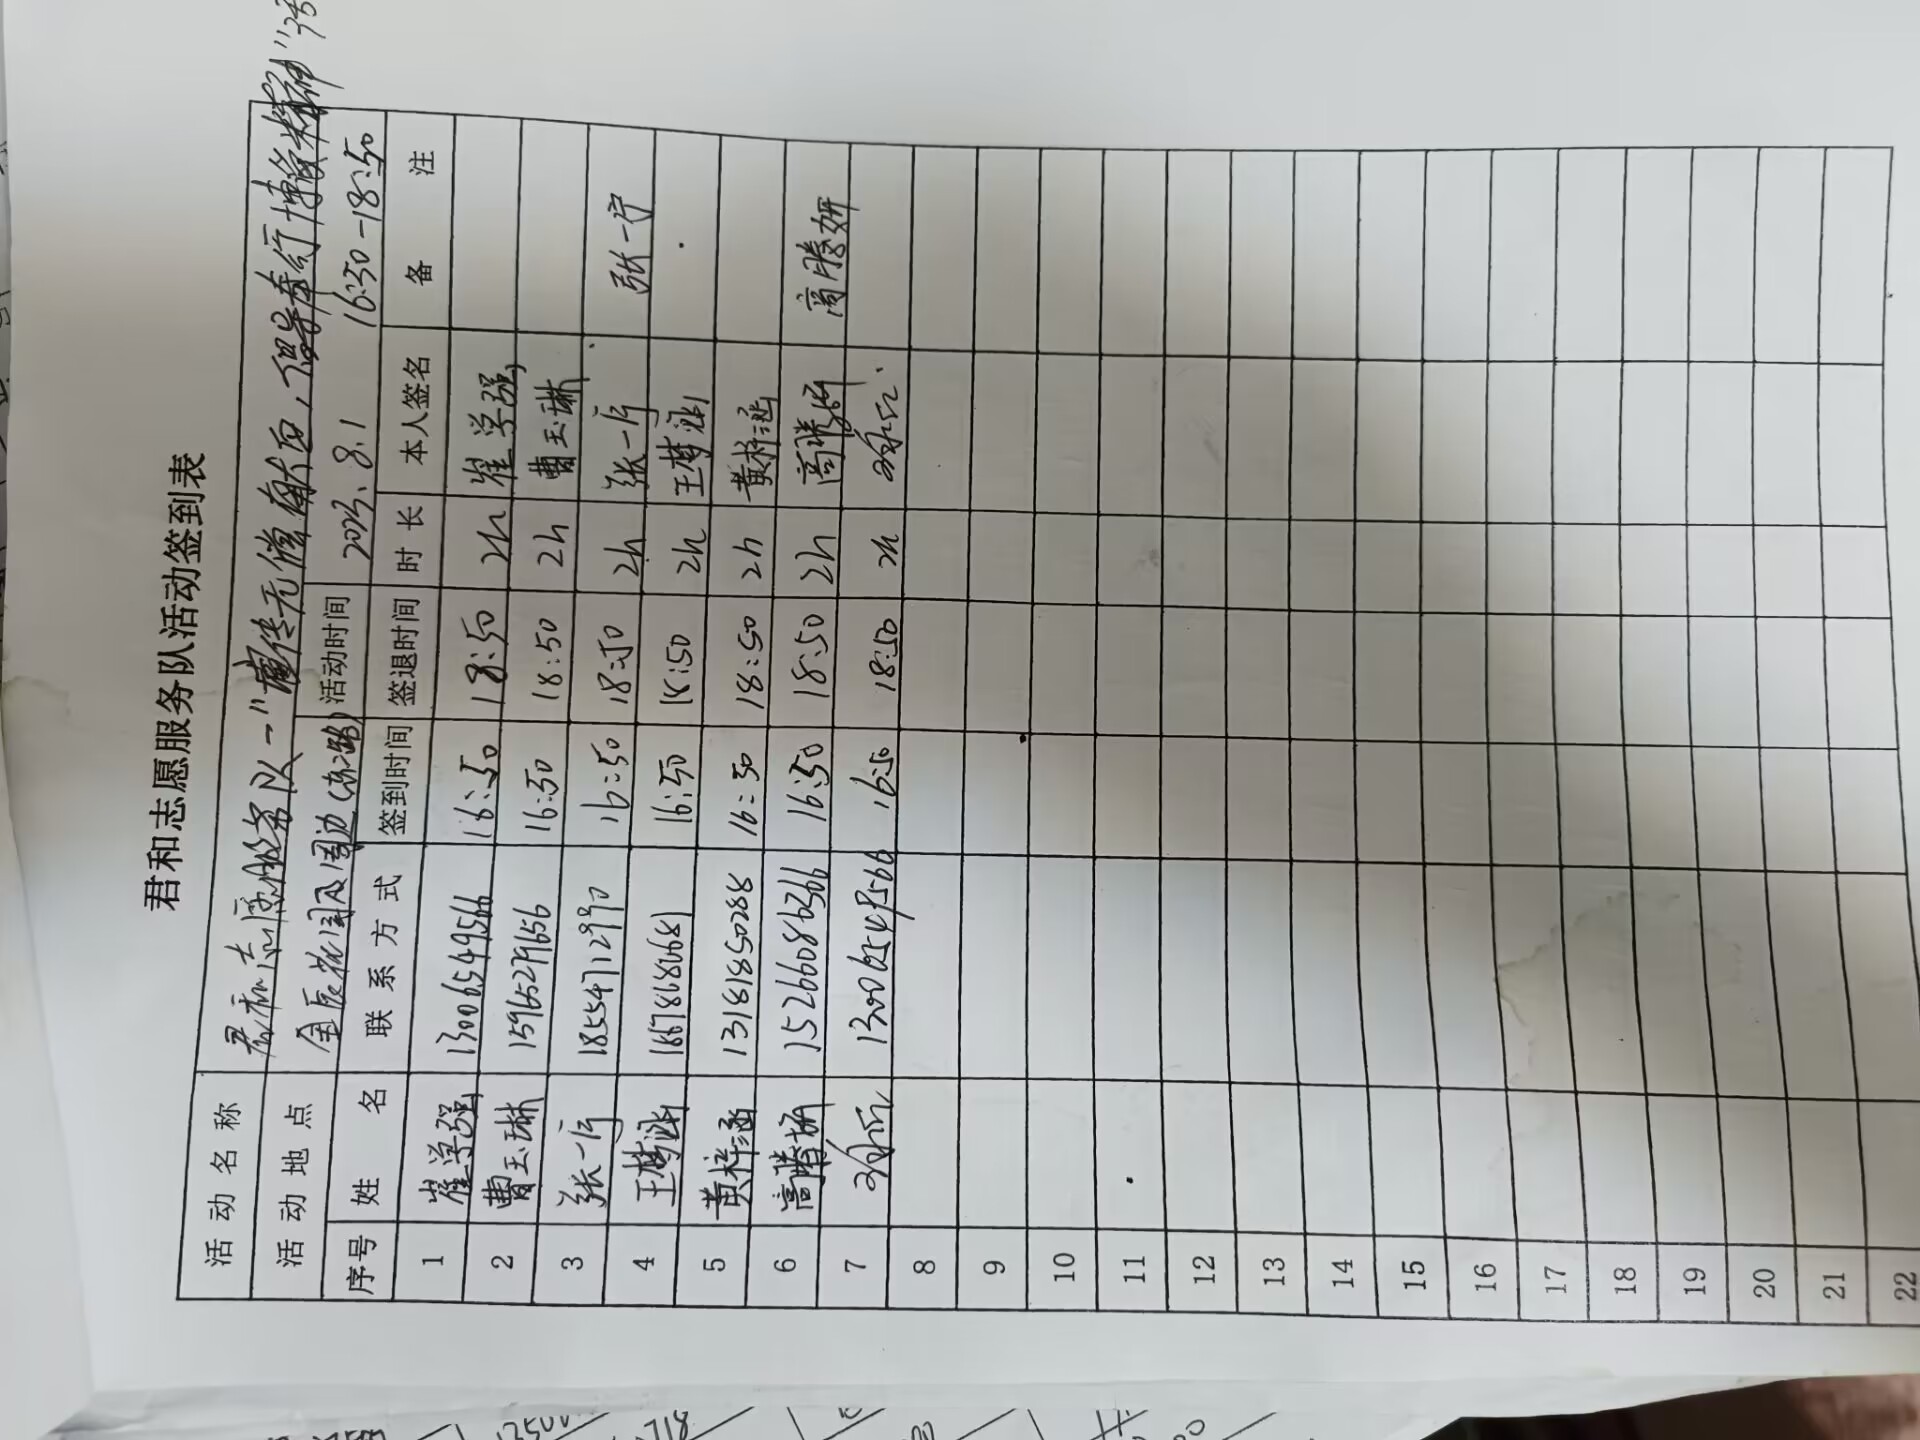 君和志愿服务队活动签到表
活动名称 君和志愿服务队—"宣传无偿献血，倡导奉行博爱精神"
活动地点 金辰花园及周边 活动时间 2023.8.1 16:50-18:50
序号 姓名 联系方式 签到时间 签退时间 时长 本人签名 备注
1 崔学强 13006549566 16:50 18:50 2h 崔学强
2 曹玉琳 15965279656 16:50 18:50 2h 曹玉琳
3 张一宁 18554712990 16:50 18:50 2h 张一宁 张一宁
4 王梦涵 16678686681 16:50 18:50 2h 王梦涵
5 黄梓涵 13181850288 16:50 18:50 2h 黄梓涵
6 高腾妍 15266086366 16:50 18:50 2h 高腾妍 高腾妍
7 13006549566 16:50 18:50 2h
8
9
10
11
12
13
14
15
16
17
18
19
20
21
22